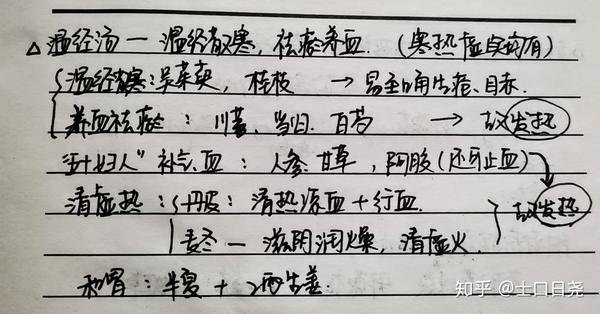 △温经汤 — 温经散寒,祛瘀养血.(寒热虚实均有)
温经散寒:吴茱萸,桂枝 → 易至咽生疮、目赤.
养血祛瘀:川芎、当归、白芍 → 故发热
"五十妇人" 补气、血:人参、甘草,阿胶(还可止血)
清虚热:丹皮:清热凉血+行血. 故发热
麦冬 — 滋阴润燥,清虚火.
和胃:半夏 + 生姜.
知乎 @土口日尧